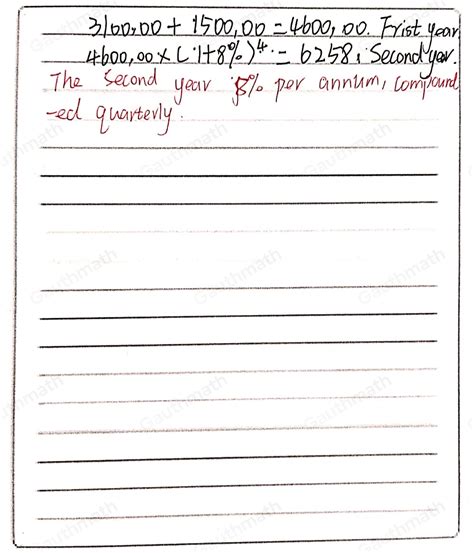 3100,00 + 1500,00 = 4600,00. Frist year
4600,00 × (1+8%)⁴ = 6258, Second year.
The second year 8% per annum, compound
-ed quarterly.
Gauthmath